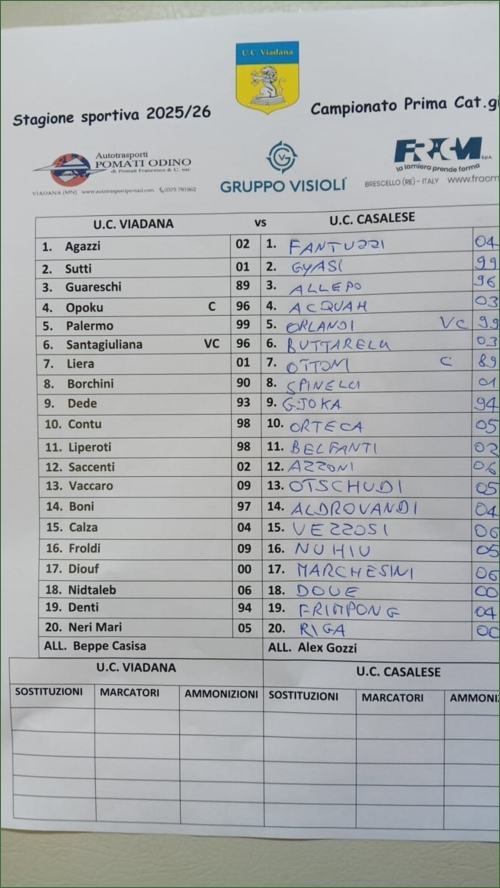 U.C. Viadana
Stagione sportiva 2025/26
Campionato Prima Cat.gi
Autotrasporti
POMATI ODINO
di Pomati Francesco & U. snc
VIADANA (MN) www.autotrasportipomati.com
GRUPPO VISIOLI
FRACM S.p.A.
la lamiera prende forma
BRESCELLO (RE) - ITALY www.fracm
U.C. VIADANA vs U.C. CASALESE
1. Agazzi 02 1. FANTUZZI 04
2. Sutti 01 2. GYASI 99
3. Guareschi 89 3. ALLEPO 96
4. Opoku C 96 4. ACQUAH 03
5. Palermo 99 5. ORLANDI VC 99
6. Santagiuliana VC 96 6. BUTTARELLI 03
7. Liera 01 7. OTTONI C 89
8. Borchini 90 8. SPINELLI 01
9. Dede 93 9. GJOKA 94
10. Contu 98 10. ORTECA 05
11. Liperoti 98 11. BELFANTI 02
12. Saccenti 02 12. AZZONI 06
13. Vaccaro 09 13. OTSCHUDI 05
14. Boni 97 14. ALDROVANDI 04
15. Calza 04 15. VEZZOSI 06
16. Froldi 09 16. NUHIU 05
17. Diouf 00 17. MARCHESINI 06
18. Nidtaleb 06 18. DOUE 00
19. Denti 94 19. FRIMPONG 04
20. Neri Mari 05 20. RIGA 00
ALL. Beppe Casisa ALL. Alex Gozzi
U.C. VIADANA U.C. CASALESE
SOSTITUZIONI MARCATORI AMMONIZIONI SOSTITUZIONI MARCATORI AMMONI